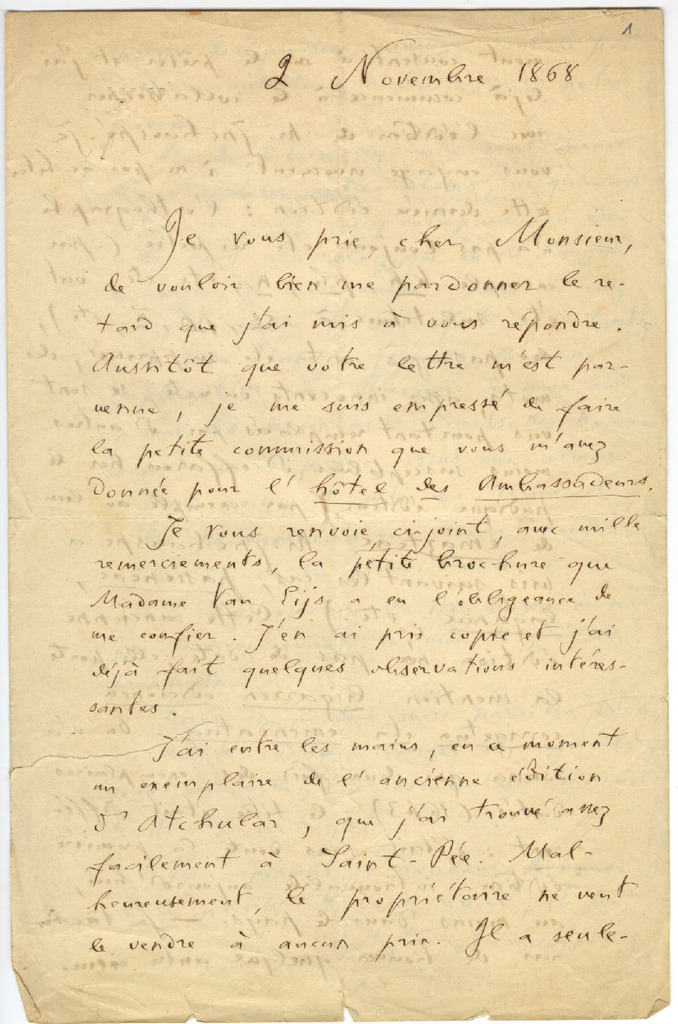 1
2 Novembre 1868
Je vous prie, cher Monsieur,
de vouloir bien me pardonner le re-
tard que j'ai mis à vous répondre.
Aussitôt que votre lettre m'est par-
venue, je me suis empressé de faire
la petite commission que vous m'avez
donnée pour l'hôtel des Ambassadeurs.
Je vous renvoie ci-joint, avec mille
remerciements, la petite brochure que
Madame Van Eijs a eu l'obligeance de
me confier. J'en ai pris copie et j'ai
déjà fait quelques observations intéres-
santes.
J'ai entre les mains, en ce moment
un exemplaire de l'ancienne édition
d'Atchular, que j'ai trouvé assez
facilement à Saint-Pée. Mal-
heureusement, le propriétaire ne veut
le vendre à aucun prix. Il a seule-